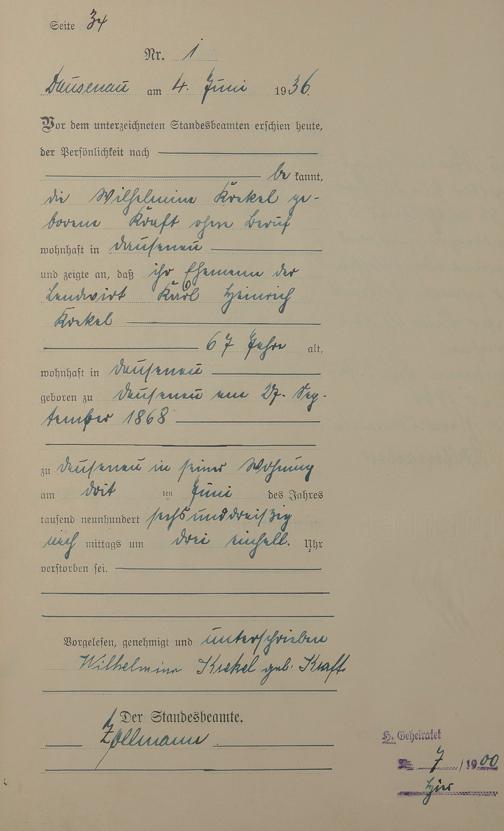 Seite 34
Nr. 1
Dausenau am 4. Juni 1936.
Vor dem unterzeichneten Standesbeamten erschien heute,
der Persönlichkeit nach
be kannt,
die Wilhelmine Krekel ge-
borene Kraft ohne Beruf
wohnhaft in Dausenau
und zeigte an, daß ihr Ehemann der
Landwirt Karl Heinrich
Krekel
67 Jahre alt,
wohnhaft in Dausenau
geboren zu Dausenau am 27. Sep-
tember 1868
zu Dausenau in seiner Wohnung
am drit ten Juni des Jahres
tausend neunhundert sechsunddreißig
nach mittags um drei einhalb Uhr
verstorben sei.
Vorgelesen, genehmigt und unterschrieben
Wilhelmine Krekel geb. Kraft
Der Standesbeamte.
Zollmann
H. Geheiratet
7/1900
hier